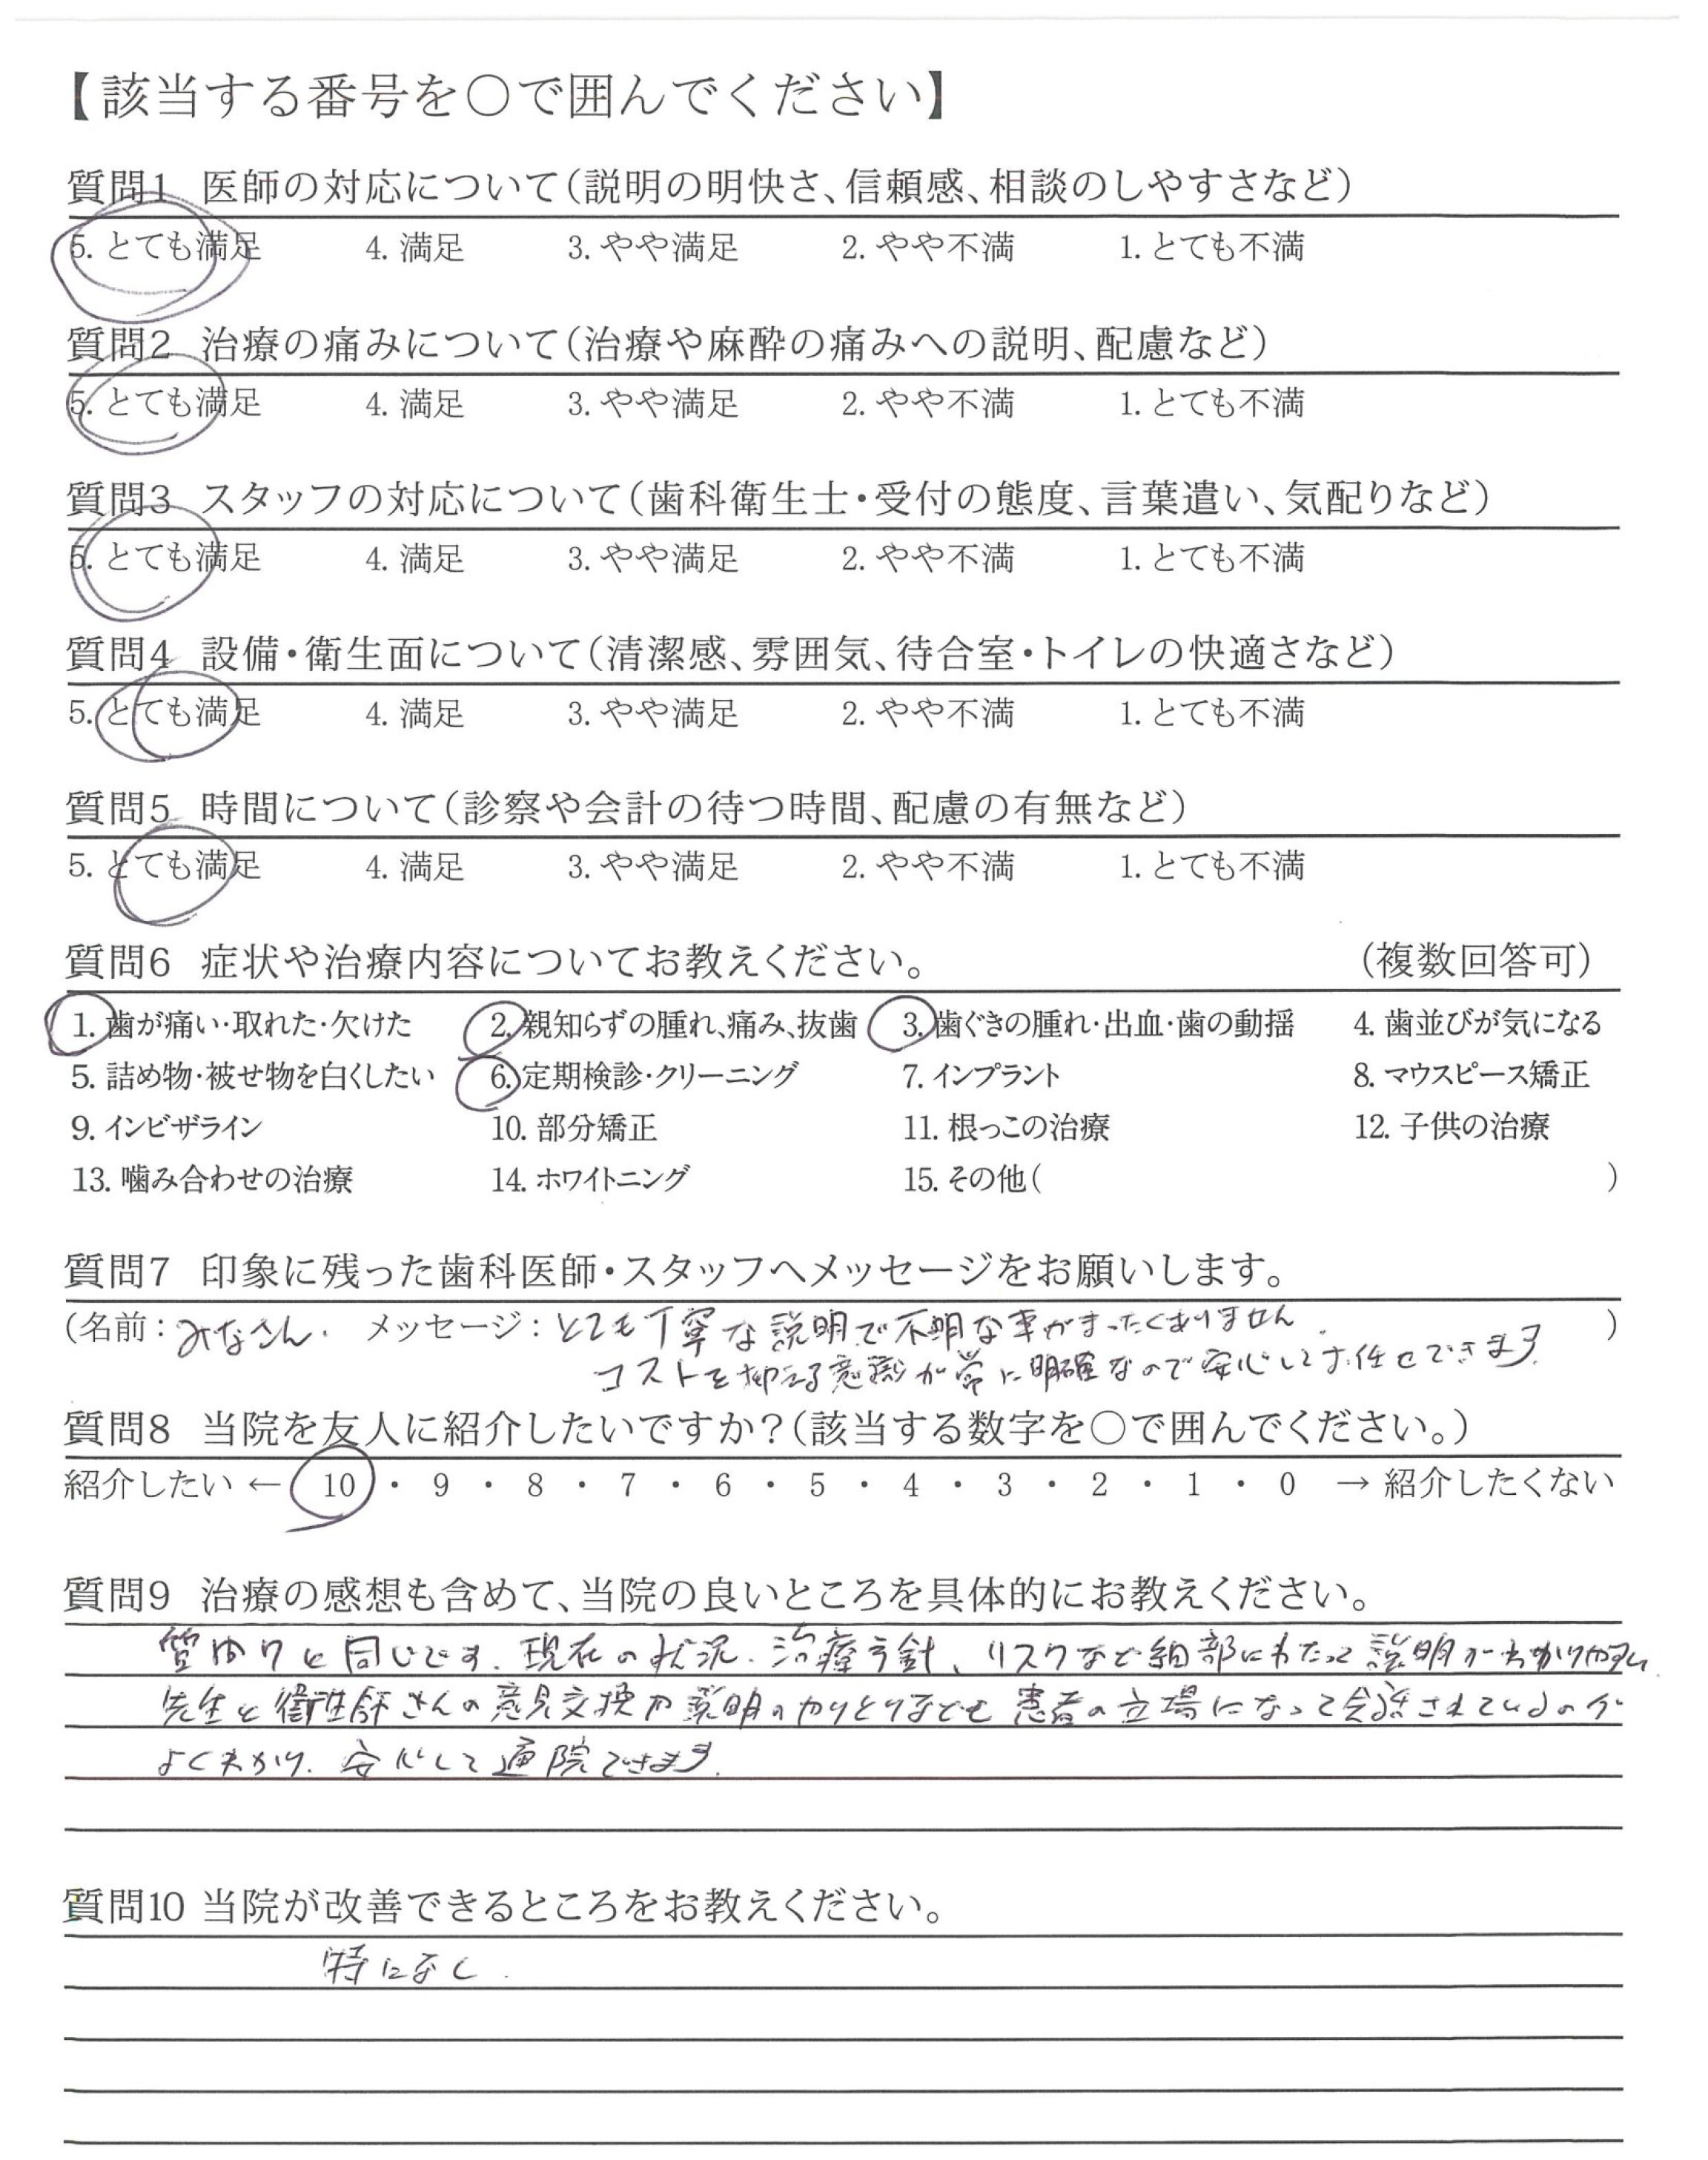 【該当する番号を〇で囲んでください】
質問1 医師の対応について（説明の明快さ、信頼感、相談のしやすさなど）
5. とても満足 4. 満足 3. やや満足 2. やや不満 1. とても不満
質問2 治療の痛みについて（治療や麻酔の痛みへの説明、配慮など）
5. とても満足 4. 満足 3. やや満足 2. やや不満 1. とても不満
質問3 スタッフの対応について（歯科衛生士・受付の態度、言葉遣い、気配りなど）
5. とても満足 4. 満足 3. やや満足 2. やや不満 1. とても不満
質問4 設備・衛生面について（清潔感、雰囲気、待合室・トイレの快適さなど）
5. とても満足 4. 満足 3. やや満足 2. やや不満 1. とても不満
質問5 時間について（診察や会計の待つ時間、配慮の有無など）
5. とても満足 4. 満足 3. やや満足 2. やや不満 1. とても不満
質問6 症状や治療内容についてお教えください。 （複数回答可）
1. 歯が痛い・取れた・欠けた 2. 親知らずの腫れ、痛み、抜歯 3. 歯ぐきの腫れ・出血・歯の動揺 4. 歯並びが気になる
5. 詰め物・被せ物を白くしたい 6. 定期検診・クリーニング 7. インプラント 8. マウスピース矯正
9. インビザライン 10. 部分矯正 11. 根っこの治療 12. 子供の治療
13. 噛み合わせの治療 14. ホワイトニング 15. その他（ ）
質問7 印象に残った歯科医師・スタッフへメッセージをお願いします。
（名前：みなさん. メッセージ：とても丁寧な説明で不明な事がまったくありません. ）
コストを抑える意識が常に明確なので安心してお任せできます.
質問8 当院を友人に紹介したいですか？（該当する数字を〇で囲んでください。）
紹介したい ← 10 ・ 9 ・ 8 ・ 7 ・ 6 ・ 5 ・ 4 ・ 3 ・ 2 ・ 1 ・ 0 → 紹介したくない
質問9 治療の感想も含めて、当院の良いところを具体的にお教えください。
質問7と同じです. 現在の状況、治療方針、リスクなど細部にわたって説明がわかりやすい.
先生と衛生師さんの意見交換や説明のやりとりなども患者の立場になって会話されているのが
よくわかり、安心して通院できます.
質問10 当院が改善できるところをお教えください。
特になし.